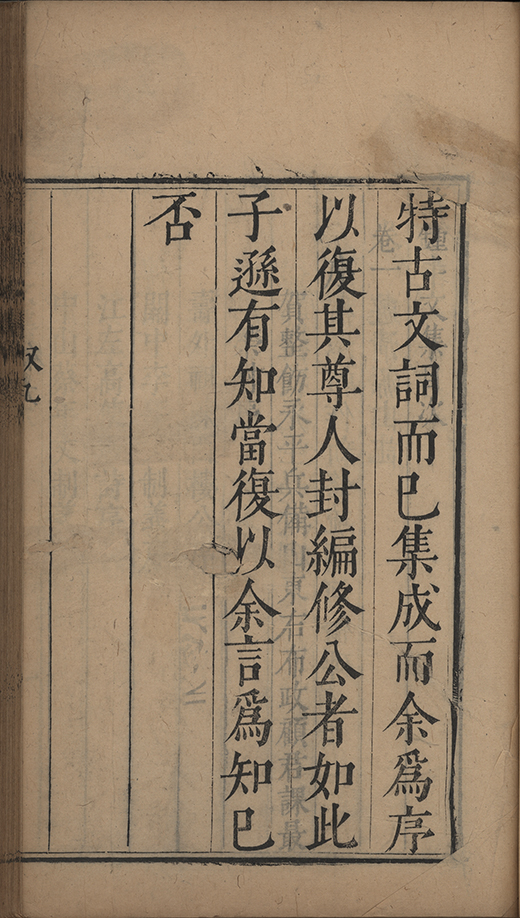 特古文詞而已集成而余爲序
以復其尊人封編修公者如此
子遜有知當復以余言爲知已
否
叙九